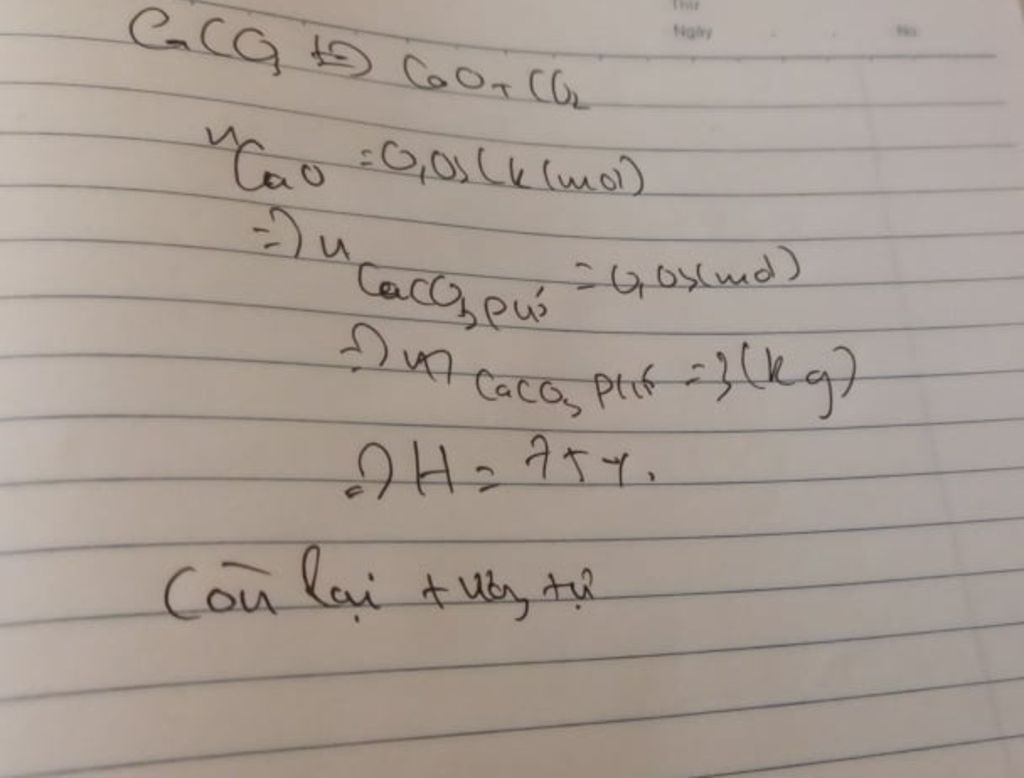 Thứ
Ngày . . No.
CaCO3 ⇌ CaO + CO2
nCaO = 0,03 (k(mol)
=> n CaCO3 pứ = 0,03(mol)
=> m CaCO3 pứ = 3(kg)
=> H = 75%.
Còn lại tương tự